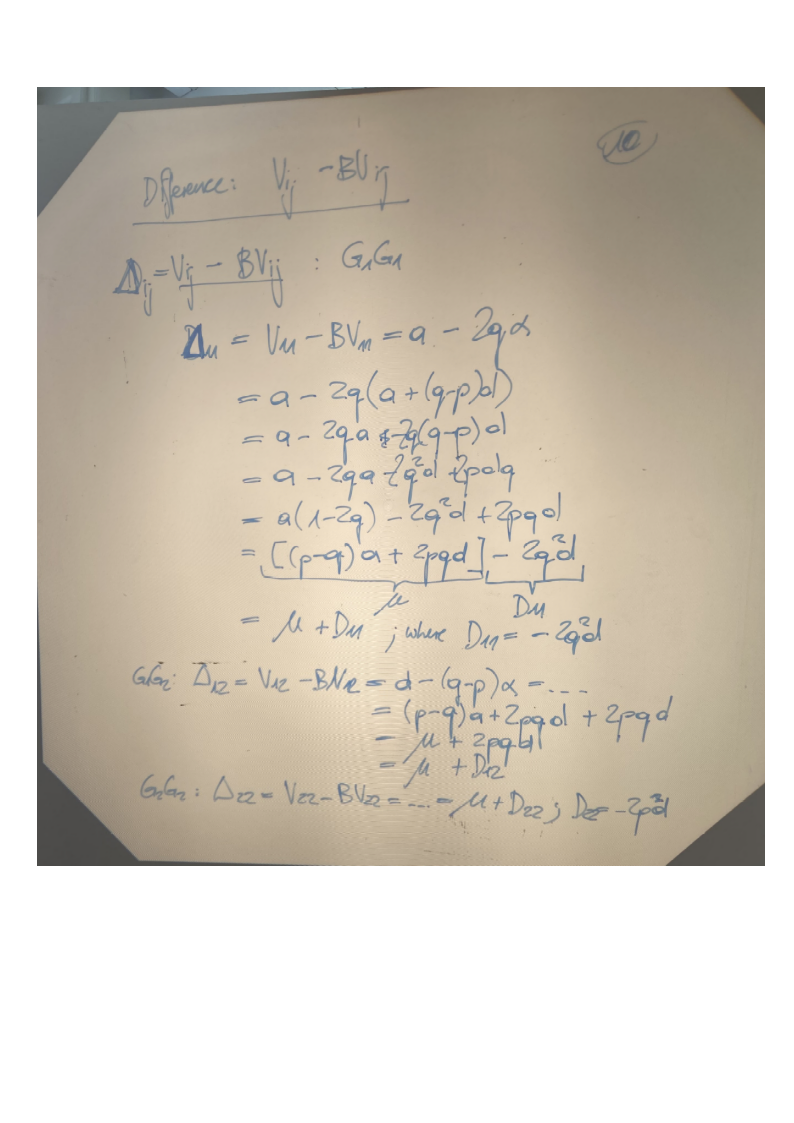 10
Difference: V_ij - BV_ij
Δ_ij = V_ij - BV_ij : G₁G₁
Δ₁₁ = V₁₁ - BV₁₁ = a - 2qα
= a - 2q(a + (q-p)d)
= a - 2qa - 2q(q-p)d
= a - 2qa - 2q²d + 2pdq
= a(1-2q) - 2q²d + 2pqd
= [(p-q)a + 2pqd] - 2q²d
μ D₁₁
= μ + D₁₁ ; where D₁₁ = - 2q²d
G₁G₂: Δ₁₂ = V₁₂ - BV₁₂ = d - (q-p)α = ...
= (p-q)a + 2pqd + 2pqd
= μ + 2pqd
= μ + D₁₂
G₂G₂: Δ₂₂ = V₂₂ - BV₂₂ = ... = μ + D₂₂ ; D₂₂ = -2p²d